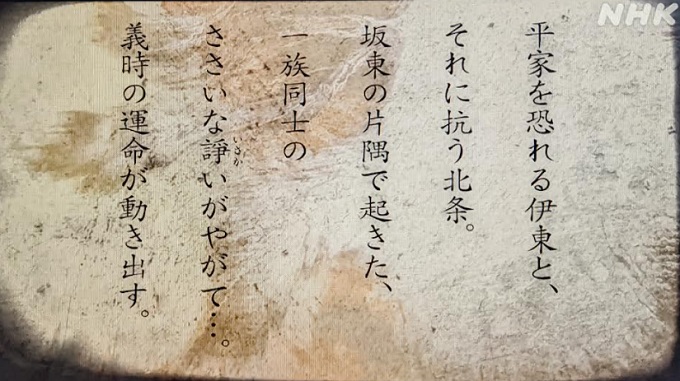 平家を恐れる伊東と、
それに抗う北条。
坂東の片隅で起きた、
一族同士の
ささいな諍いがやがて…。
いさか
義時の運命が動き出す。
NHK